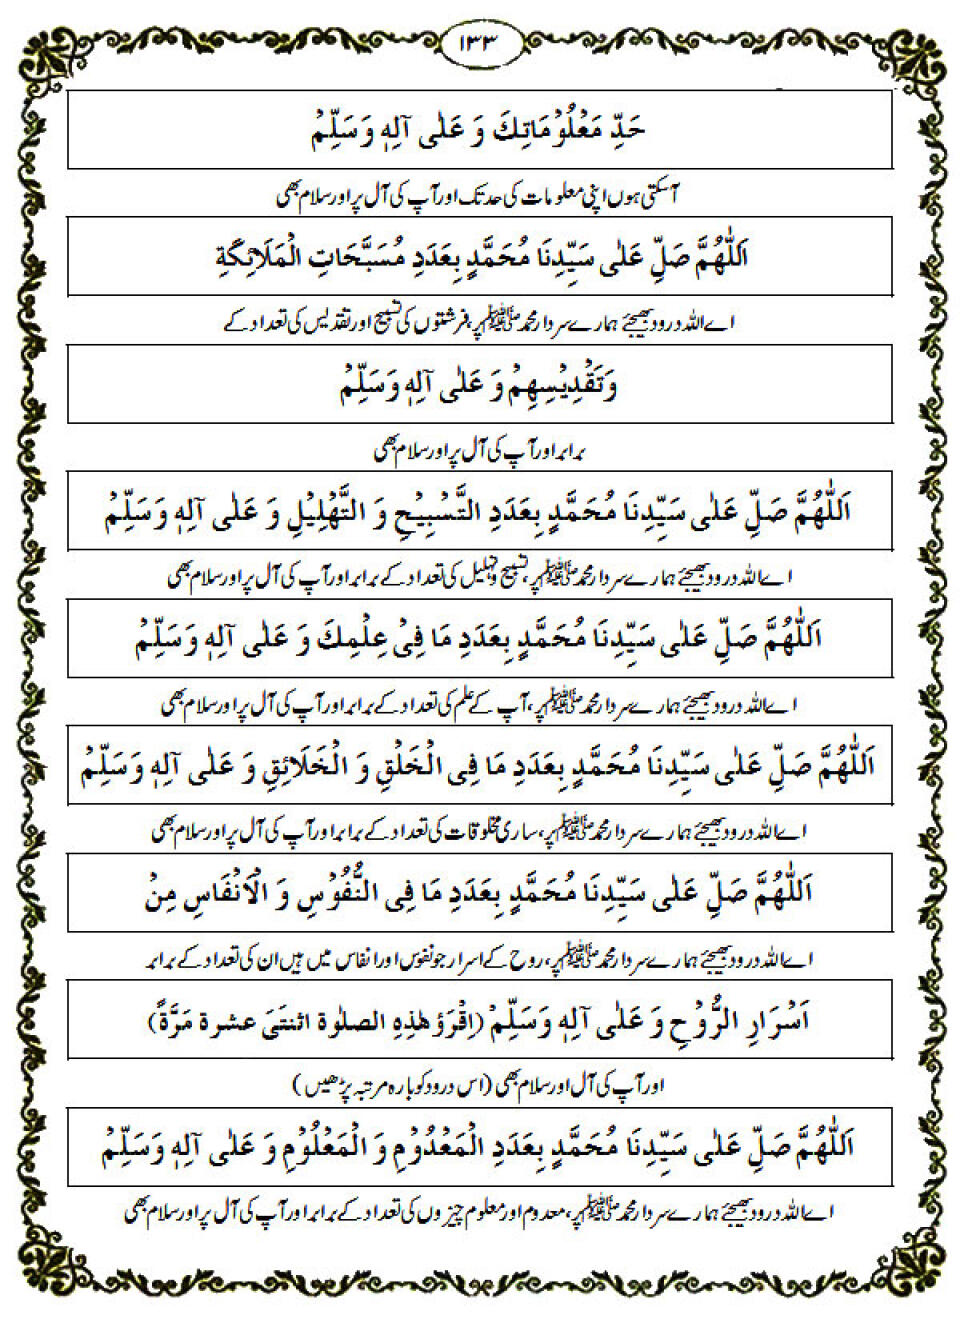 ۱۳۳
حَدِّ مَعْلُوْمَاتِكَ وَ عَلٰى آلِهٖ وَسَلِّمْ
آسکتی ہوں اپنی معلومات کی حد تک اور آپ کی آل پر اور سلام بھی
اَللّٰهُمَّ صَلِّ عَلٰى سَيِّدِنَا مُحَمَّدٍ بِعَدَدِ مُسَبَّحَاتِ الْمَلَائِكَةِ
اے اللہ درود بھیجئے ہمارے سردار محمد ﷺ پر، فرشتوں کی تسبیح اور تقدیس کی تعداد کے
وَتَقْدِيْسِهِمْ وَ عَلٰى آلِهٖ وَسَلِّمْ
برابر اور آپ کی آل پر اور سلام بھی
اَللّٰهُمَّ صَلِّ عَلٰى سَيِّدِنَا مُحَمَّدٍ بِعَدَدِ التَّسْبِيْحِ وَ التَّهْلِيْلِ وَ عَلٰى آلِهٖ وَسَلِّمْ
اے اللہ درود بھیجئے ہمارے سردار محمد ﷺ پر، تسبیح و تہلیل کی تعداد کے برابر اور آپ کی آل پر اور سلام بھی
اَللّٰهُمَّ صَلِّ عَلٰى سَيِّدِنَا مُحَمَّدٍ بِعَدَدِ مَا فِيْ عِلْمِكَ وَ عَلٰى آلِهٖ وَسَلِّمْ
اے اللہ درود بھیجئے ہمارے سردار محمد ﷺ پر، آپ کے علم کی تعداد کے برابر اور آپ کی آل پر اور سلام بھی
اَللّٰهُمَّ صَلِّ عَلٰى سَيِّدِنَا مُحَمَّدٍ بِعَدَدِ مَا فِى الْخَلْقِ وَ الْخَلَائِقِ وَ عَلٰى آلِهٖ وَسَلِّمْ
اے اللہ درود بھیجئے ہمارے سردار محمد ﷺ پر، ساری مخلوقات کی تعداد کے برابر اور آپ کی آل پر اور سلام بھی
اَللّٰهُمَّ صَلِّ عَلٰى سَيِّدِنَا مُحَمَّدٍ بِعَدَدِ مَا فِى النُّفُوْسِ وَ الْاَنْفَاسِ مِنْ
اے اللہ درود بھیجئے ہمارے سردار محمد ﷺ پر، روح کے اسرار جو نفوس اور انفاس میں ہیں ان کی تعداد کے برابر
اَسْرَارِ الرُّوْحِ وَ عَلٰى آلِهٖ وَسَلِّمْ (اِقْرَؤ هٰذِهِ الصلوٰة اثنتىَ عشرة مَرَّةً)
اور آپ کی آل اور سلام بھی (اس درود کو بارہ مرتبہ پڑھیں)
اَللّٰهُمَّ صَلِّ عَلٰى سَيِّدِنَا مُحَمَّدٍ بِعَدَدِ الْمَعْدُوْمِ وَ الْمَعْلُوْمِ وَ عَلٰى آلِهٖ وَسَلِّمْ
اے اللہ درود بھیجئے ہمارے سردار محمد ﷺ پر، معدوم اور معلوم چیزوں کی تعداد کے برابر اور آپ کی آل پر اور سلام بھی